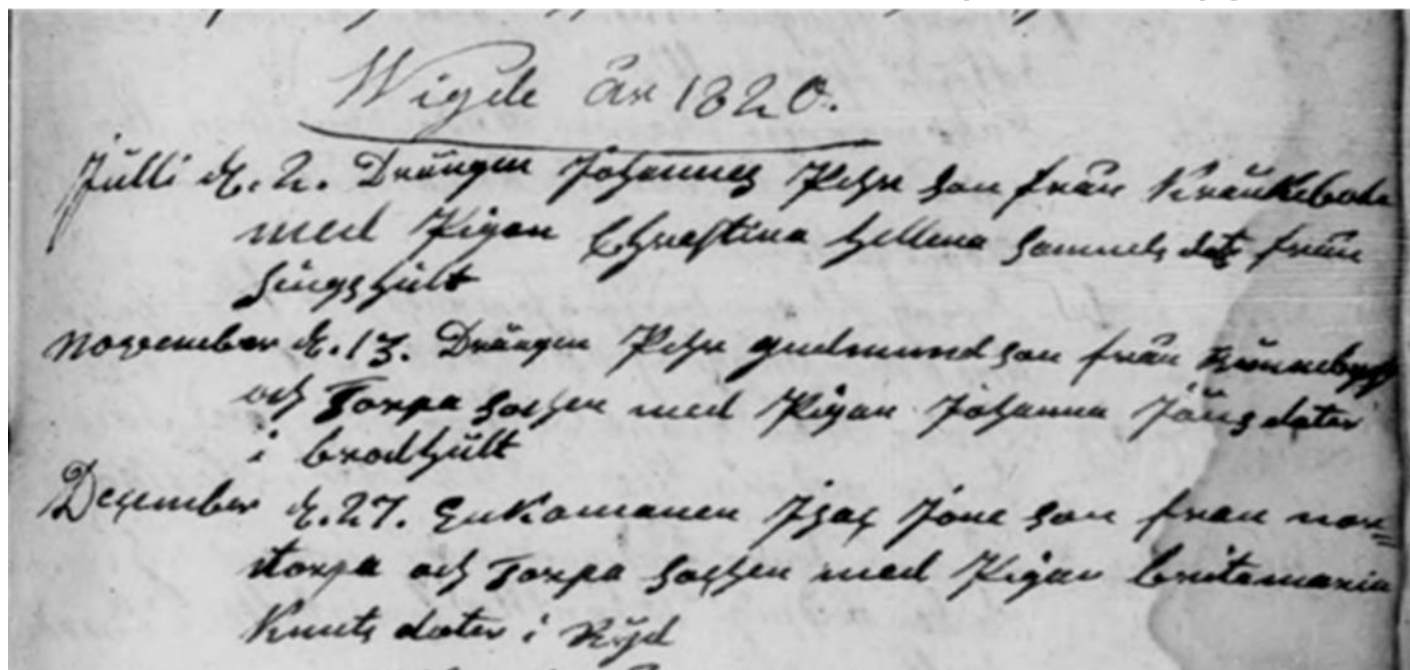 Wigde år 1820.
Julli d. 2. Drängen Johannes Pehr son från Kränkeboda
med Pigan Chrestina Hellena Samuels dotr från
November d. 13. Drängen Pehr gudmundson från
och Torpa Sochen med Pigan Johanna Jöns doter
i brodhült
December d. 27. Enkomanen Isac Jone son från nor=
storpa och Torpa Sochen med Pigan britamaria
Knuts doter i Ryd